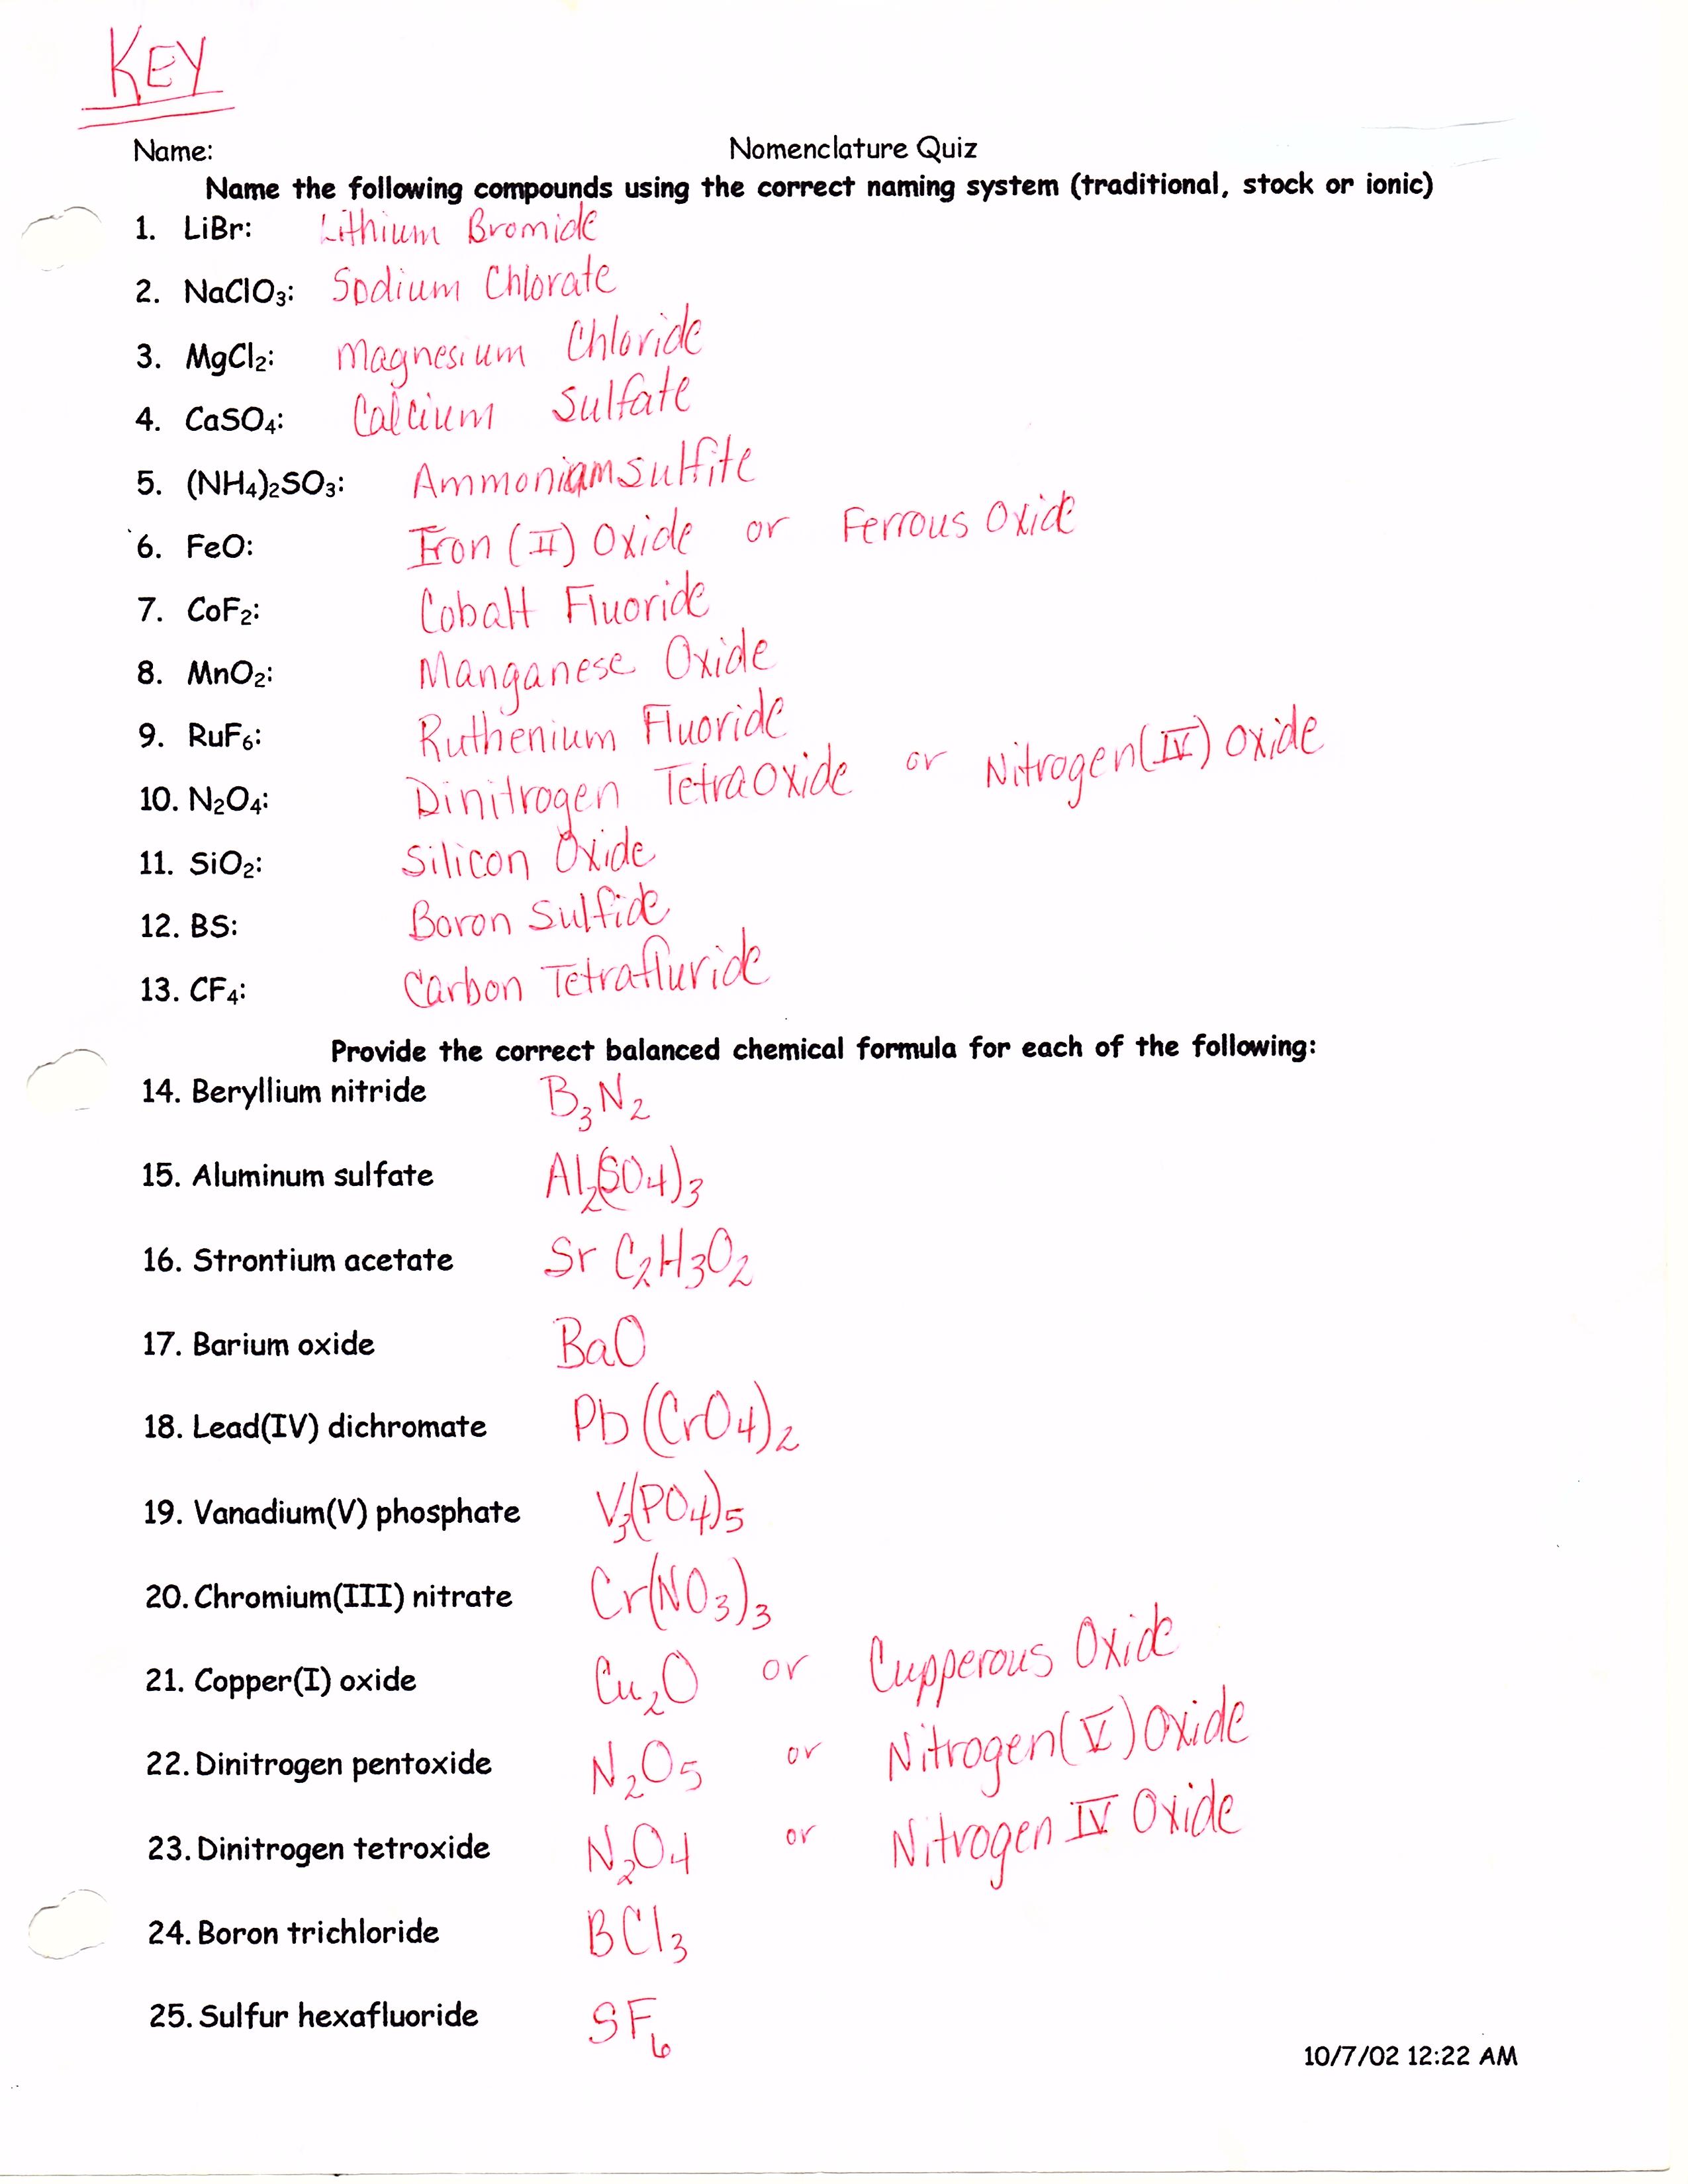 KEY
Name: Nomenclature Quiz
Name the following compounds using the correct naming system (traditional, stock or ionic)
1. LiBr: Lithium Bromide
2. NaClO3: Sodium Chlorate
3. MgCl2: Magnesium Chloride
4. CaSO4: Calcium Sulfate
5. (NH4)2SO3: Ammonium sulfite
6. FeO: Iron (II) Oxide or Ferrous Oxide
7. CoF2: Cobalt Fluoride
8. MnO2: Manganese Oxide
9. RuF6: Ruthenium Fluoride
10. N2O4: Dinitrogen Tetraoxide or Nitrogen(IV) Oxide
11. SiO2: Silicon Oxide
12. BS: Boron Sulfide
13. CF4: Carbon Tetrafluride
Provide the correct balanced chemical formula for each of the following:
14. Beryllium nitride B3N2
15. Aluminum sulfate Al2(SO4)3
16. Strontium acetate Sr C2H3O2
17. Barium oxide BaO
18. Lead(IV) dichromate Pb(CrO4)2
19. Vanadium(V) phosphate V3(PO4)5
20. Chromium(III) nitrate Cr(NO3)3
21. Copper(I) oxide Cu2O or Cupperous Oxide
22. Dinitrogen pentoxide N2O5 or Nitrogen(V) Oxide
23. Dinitrogen tetroxide N2O4 or Nitrogen IV Oxide
24. Boron trichloride BCl3
25. Sulfur hexafluoride SF6
10/7/02 12:22 AM